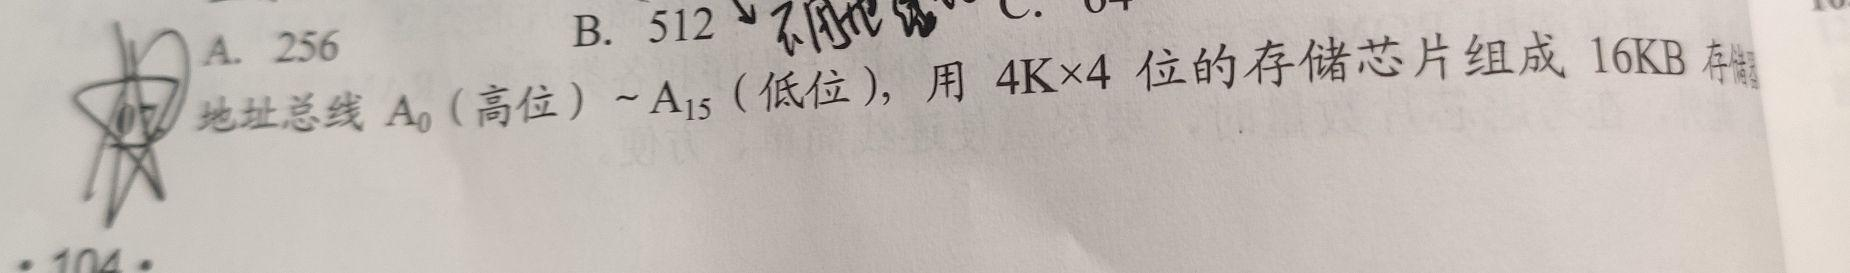 A. 256 B. 512 C. 64
07 地址总线 A₀（高位）~A₁₅（低位），用 4K×4 位的存储芯片组成 16KB 存储器
·104·